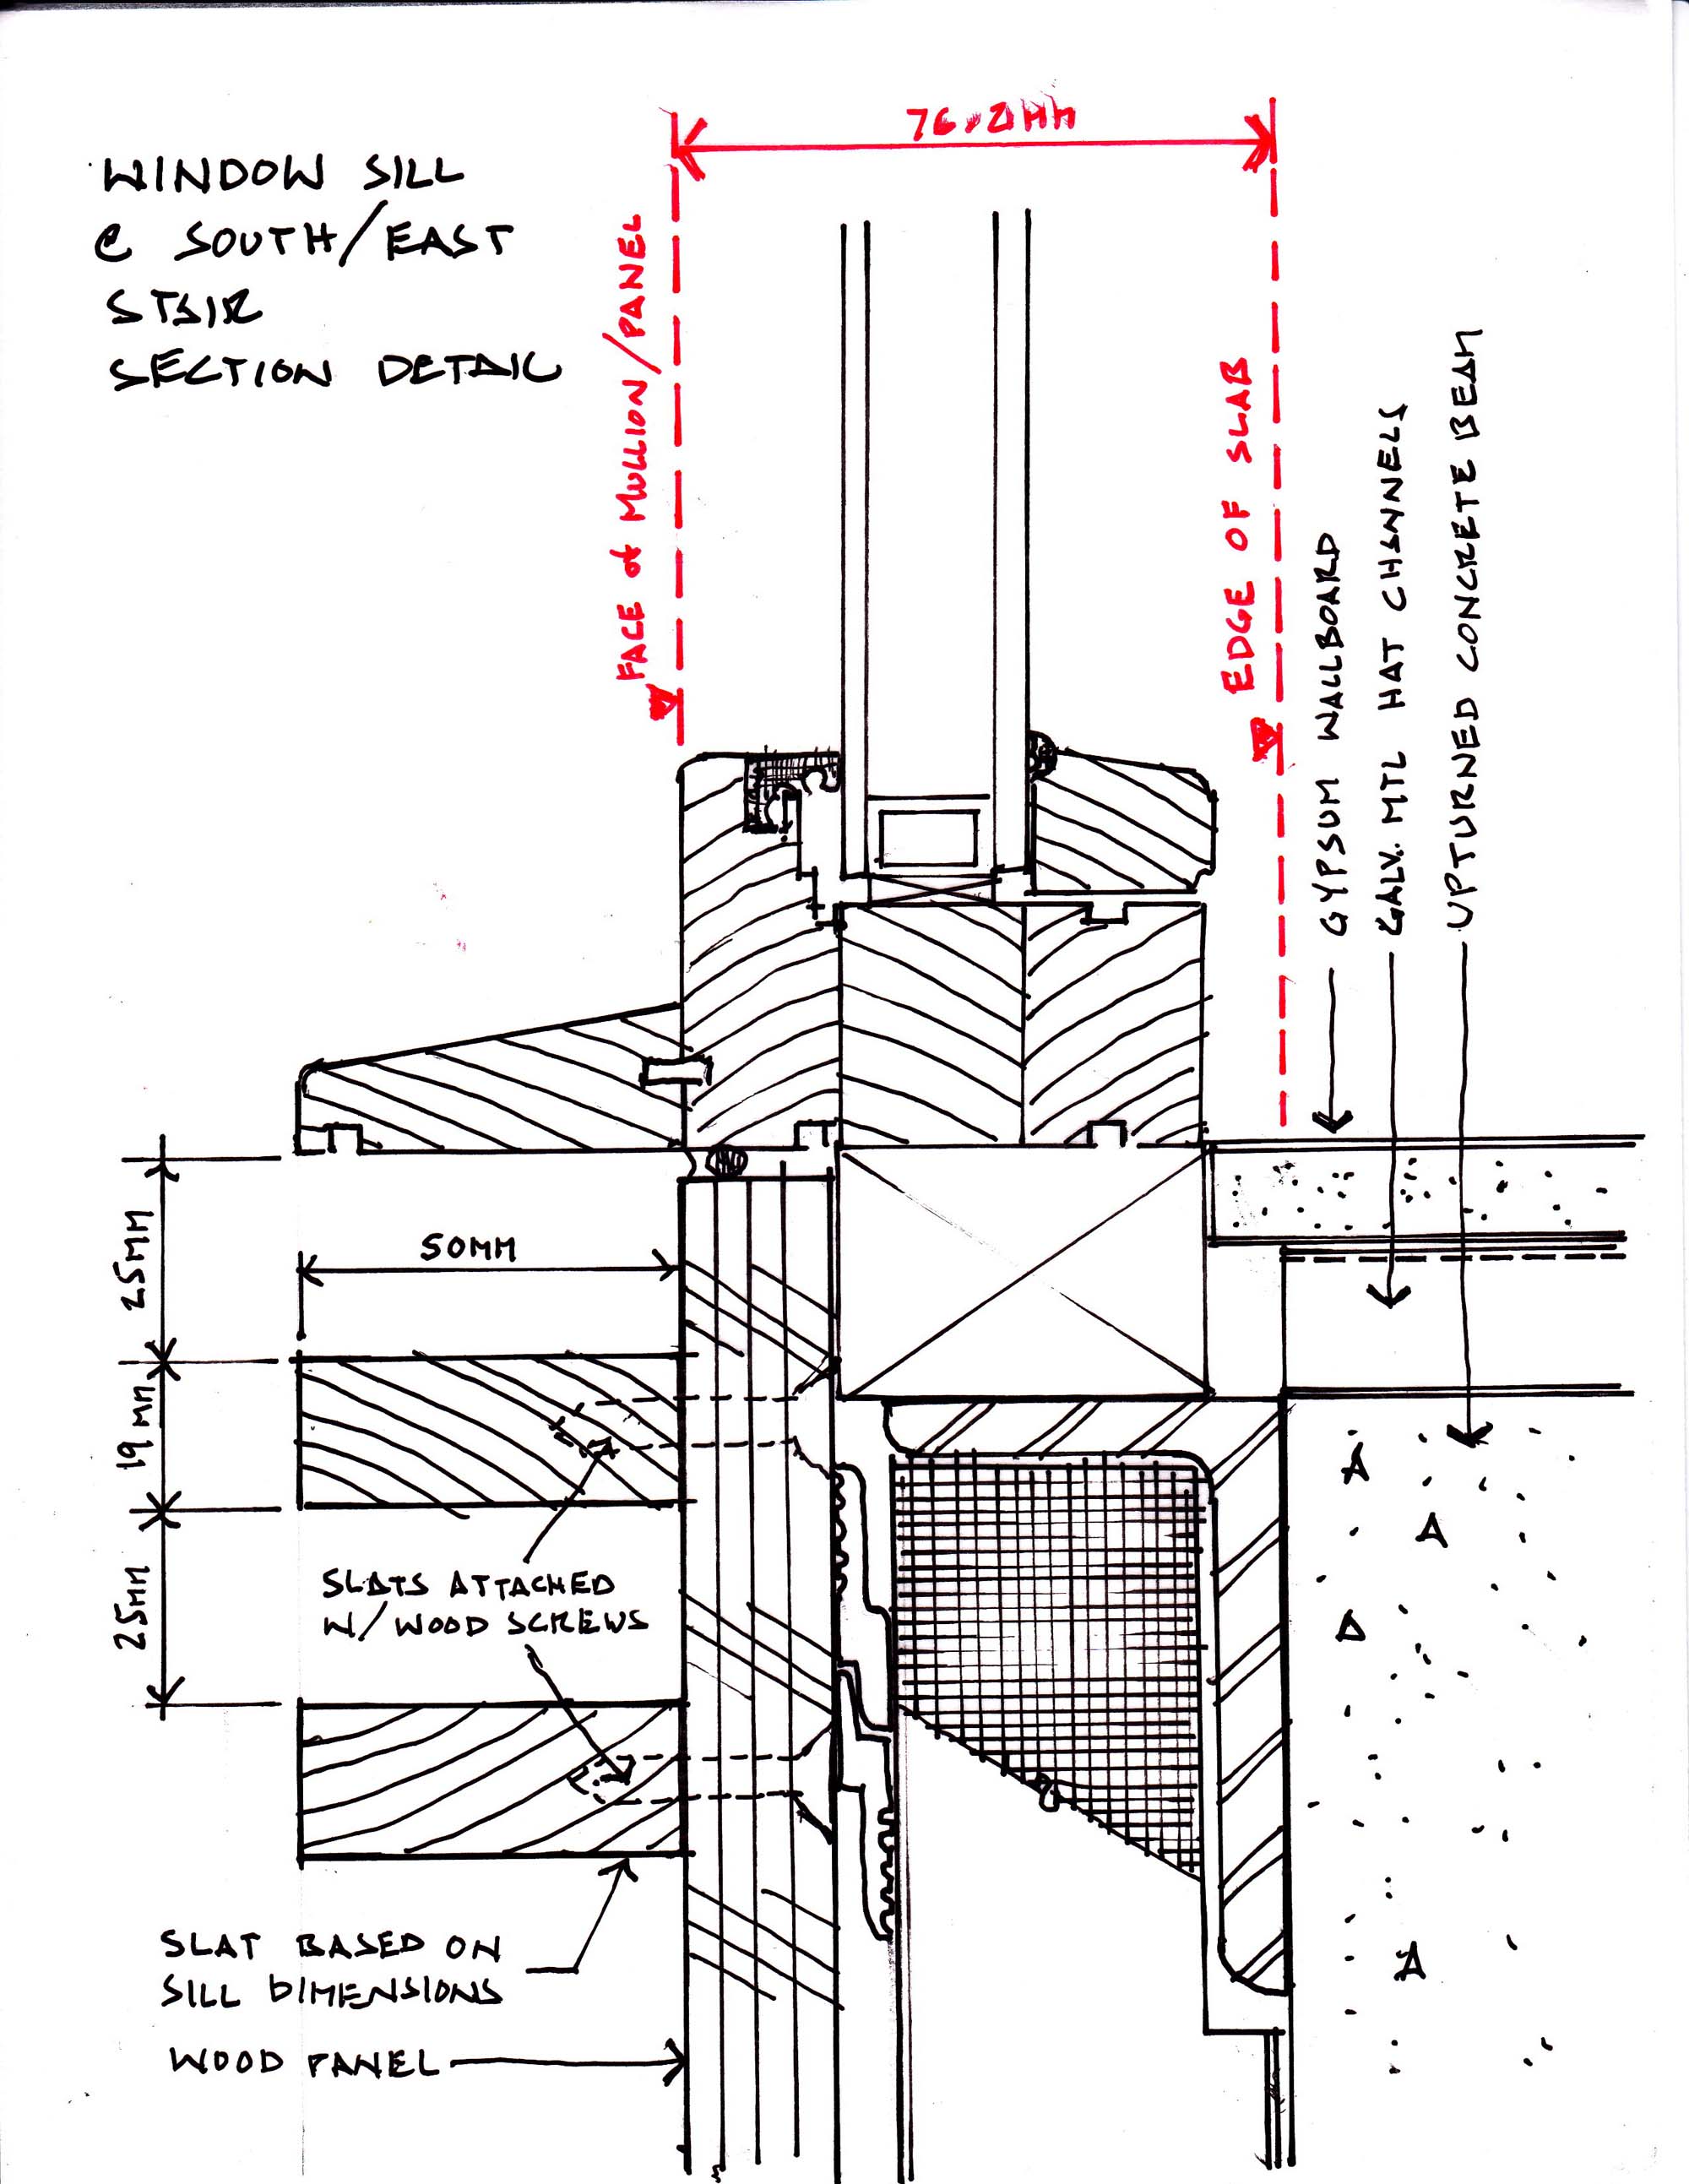 76.2MM
WINDOW SILL
@ SOUTH/EAST
STAIR
SECTION DETAIL
FACE of MULLION/PANEL
EDGE OF SLAB
GYPSUM WALLBOARD
GALV. MTL HAT CHANNELS
UPTURNED CONCRETE BEAM
25MM
50MM
19MM
25MM
SLATS ATTACHED
W/ WOOD SCREWS
SLAT BASED ON
SILL DIMENSIONS
WOOD PANEL